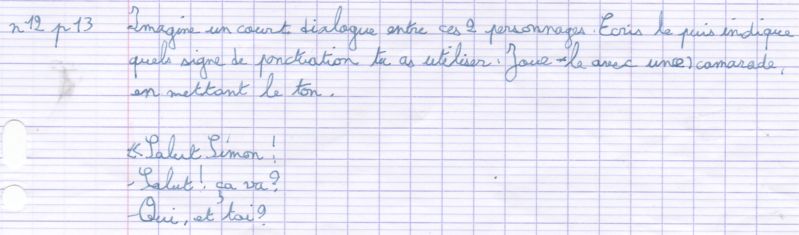 n°12 p13 Imagine un court dialogue entre ces 2 personnages. Ecris le puis indique
quels signe de ponctiation tu as utiliser. Joue-le avec un(e) camarade,
en mettant le ton.
« Salut Simon !
- Salut ! ça va ?
- Oui, et toi ?